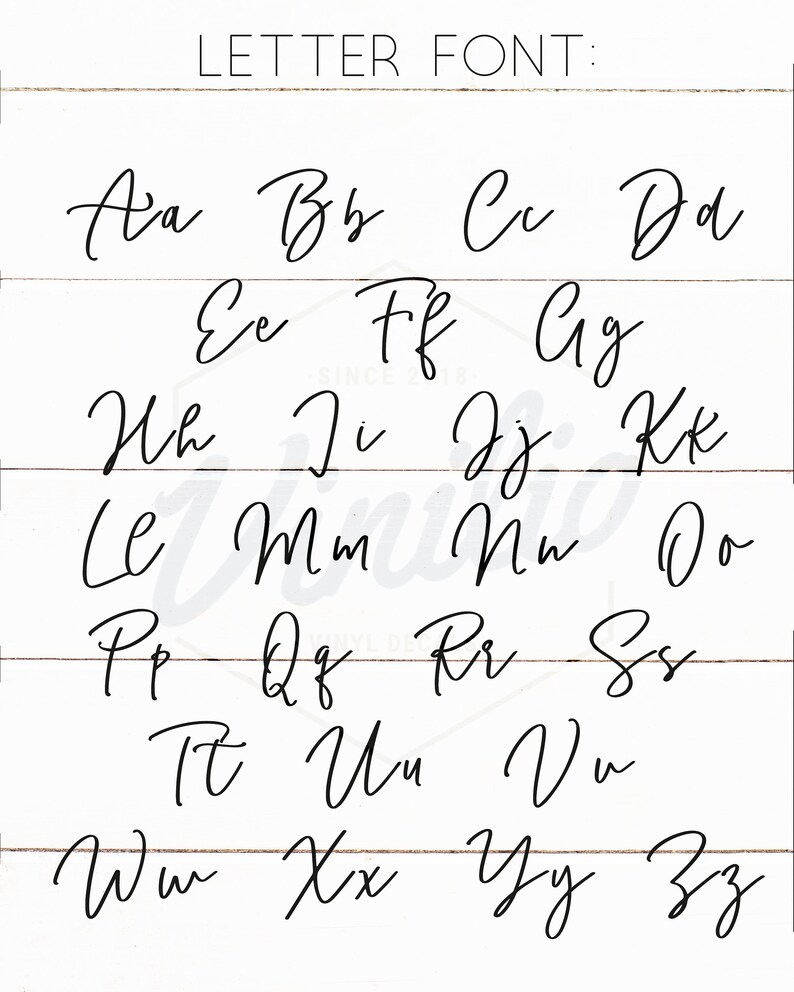 LETTER FONT:
Aa Bb Cc Dd
Ee Ff Gg
·SINCE 2018·
Hh Ii Jj Kk
Vinilio
Ll Mm Nn Oo
VINYL DECALS
Pp Qq Rr Ss
Tt Uu Vv
Ww Xx Yy Zz